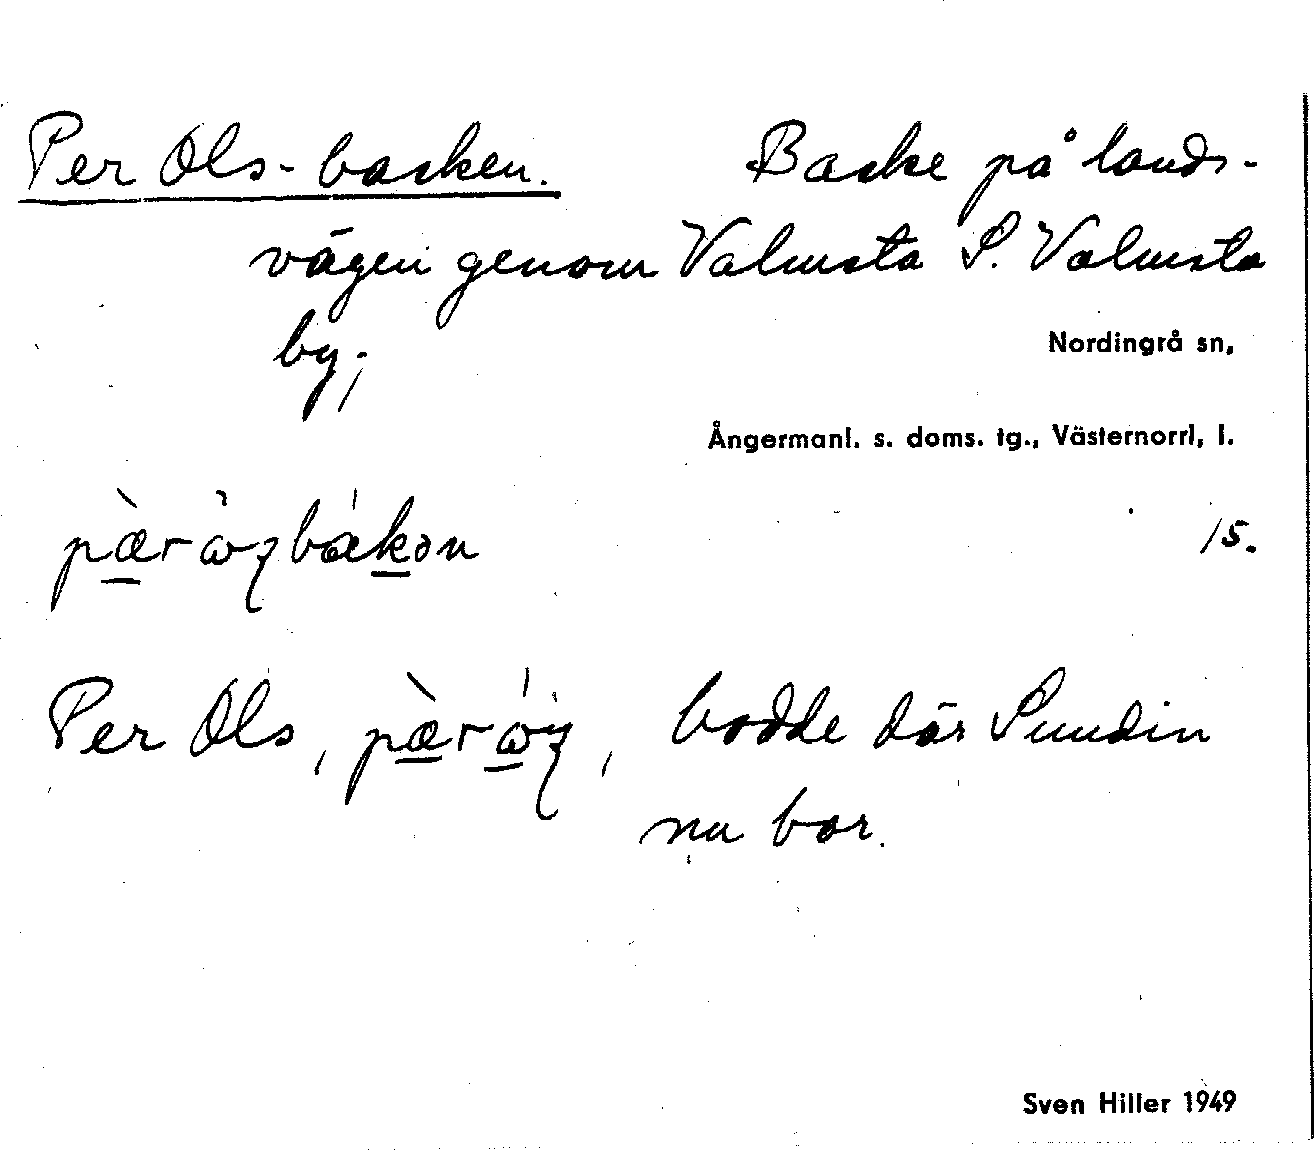 Per Ols-backen. Backe på lands-
vägen genom Valmsta S. Valmsta
by;
Nordingrå sn,
Ångermanl. s. doms. tg., Västernorrl, l.
15.
Per Ols, bodde där Sundin
nu bor.
Sven Hiller 1949